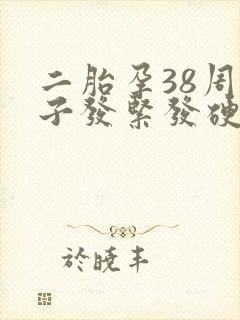 二胎孕38周
子發緊發硬
於曉丰